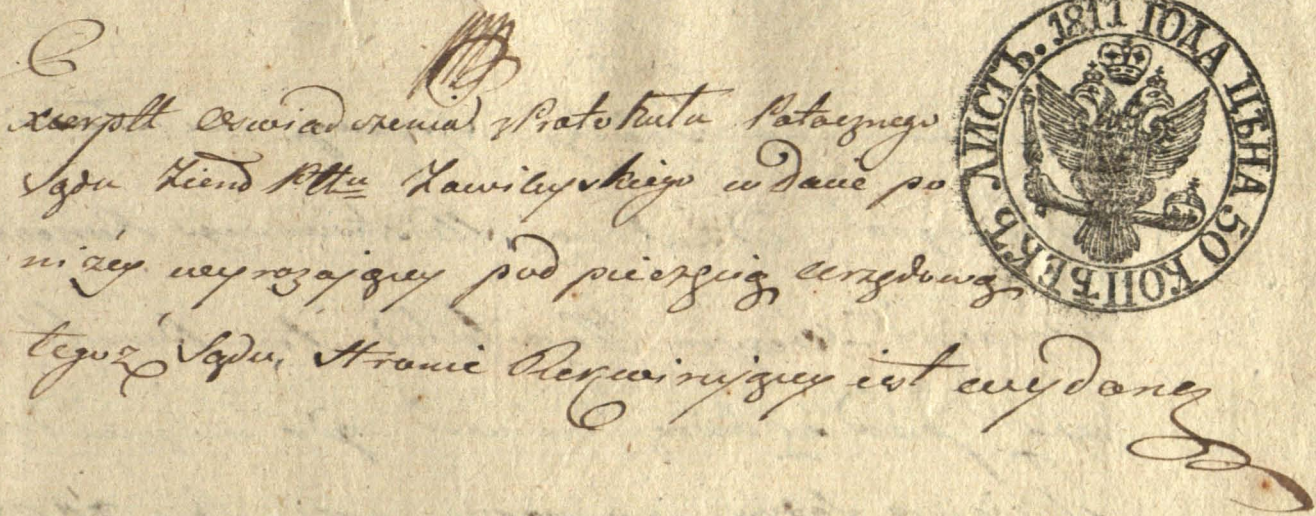 Exerptt Oswiadczenia z Protokułu Potocznego
Sądu Ziem Pttu Zawileyskiego w dacie po
niżey wyrażaiącey pod pieczęcią Urzędową
tegoż Sądu, Stronie Rekwiruiącey iest wydany
ЛИСТЪ. 1811 ГОДА ЦѢНА 50 КОПѢЕКЪ